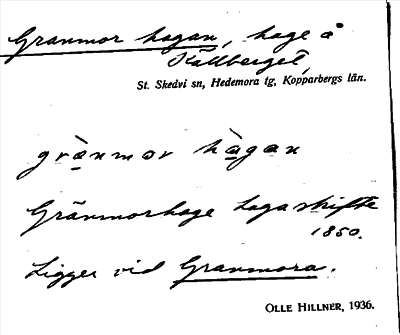 Granmor hagan, hage å
Källberget,
St. Skedvi sn, Hedemora tg, Kopparbergs län.
grànmor hàgan
Gränmorhage Laga skifte
1850.
Ligger vid Granmora.
OLLE HILLNER, 1936.